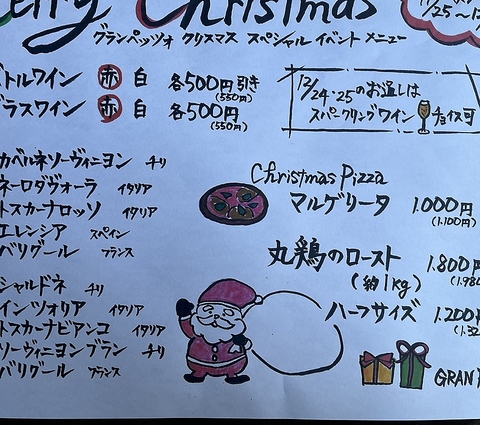 erry Christmas
/25~1
グランペッツォ クリスマス スペシャル イベント メニュー
ボトルワイン 赤 白 各500円引き
(550円)
グラスワイン 赤 白 各500円
(550円)
12/24・25のお通しは
スパークリングワイン チョイス可
カベルネソーヴィニヨン チリ
ネーロダヴォーラ イタリア
トスカーナロッソ イタリア
エレンシア スペイン
バリグール フランス
シャルドネ チリ
インツォリア イタリア
トスカーナビアンコ イタリア
ソーヴィニヨンブラン チリ
バリグール フランス
Christmas Pizza
マルゲリータ 1.000円
(1.100円)
丸鶏のロースト 1.800円
(約1kg) (1.980
ハーフサイズ 1.200円
(1.32
GRAN